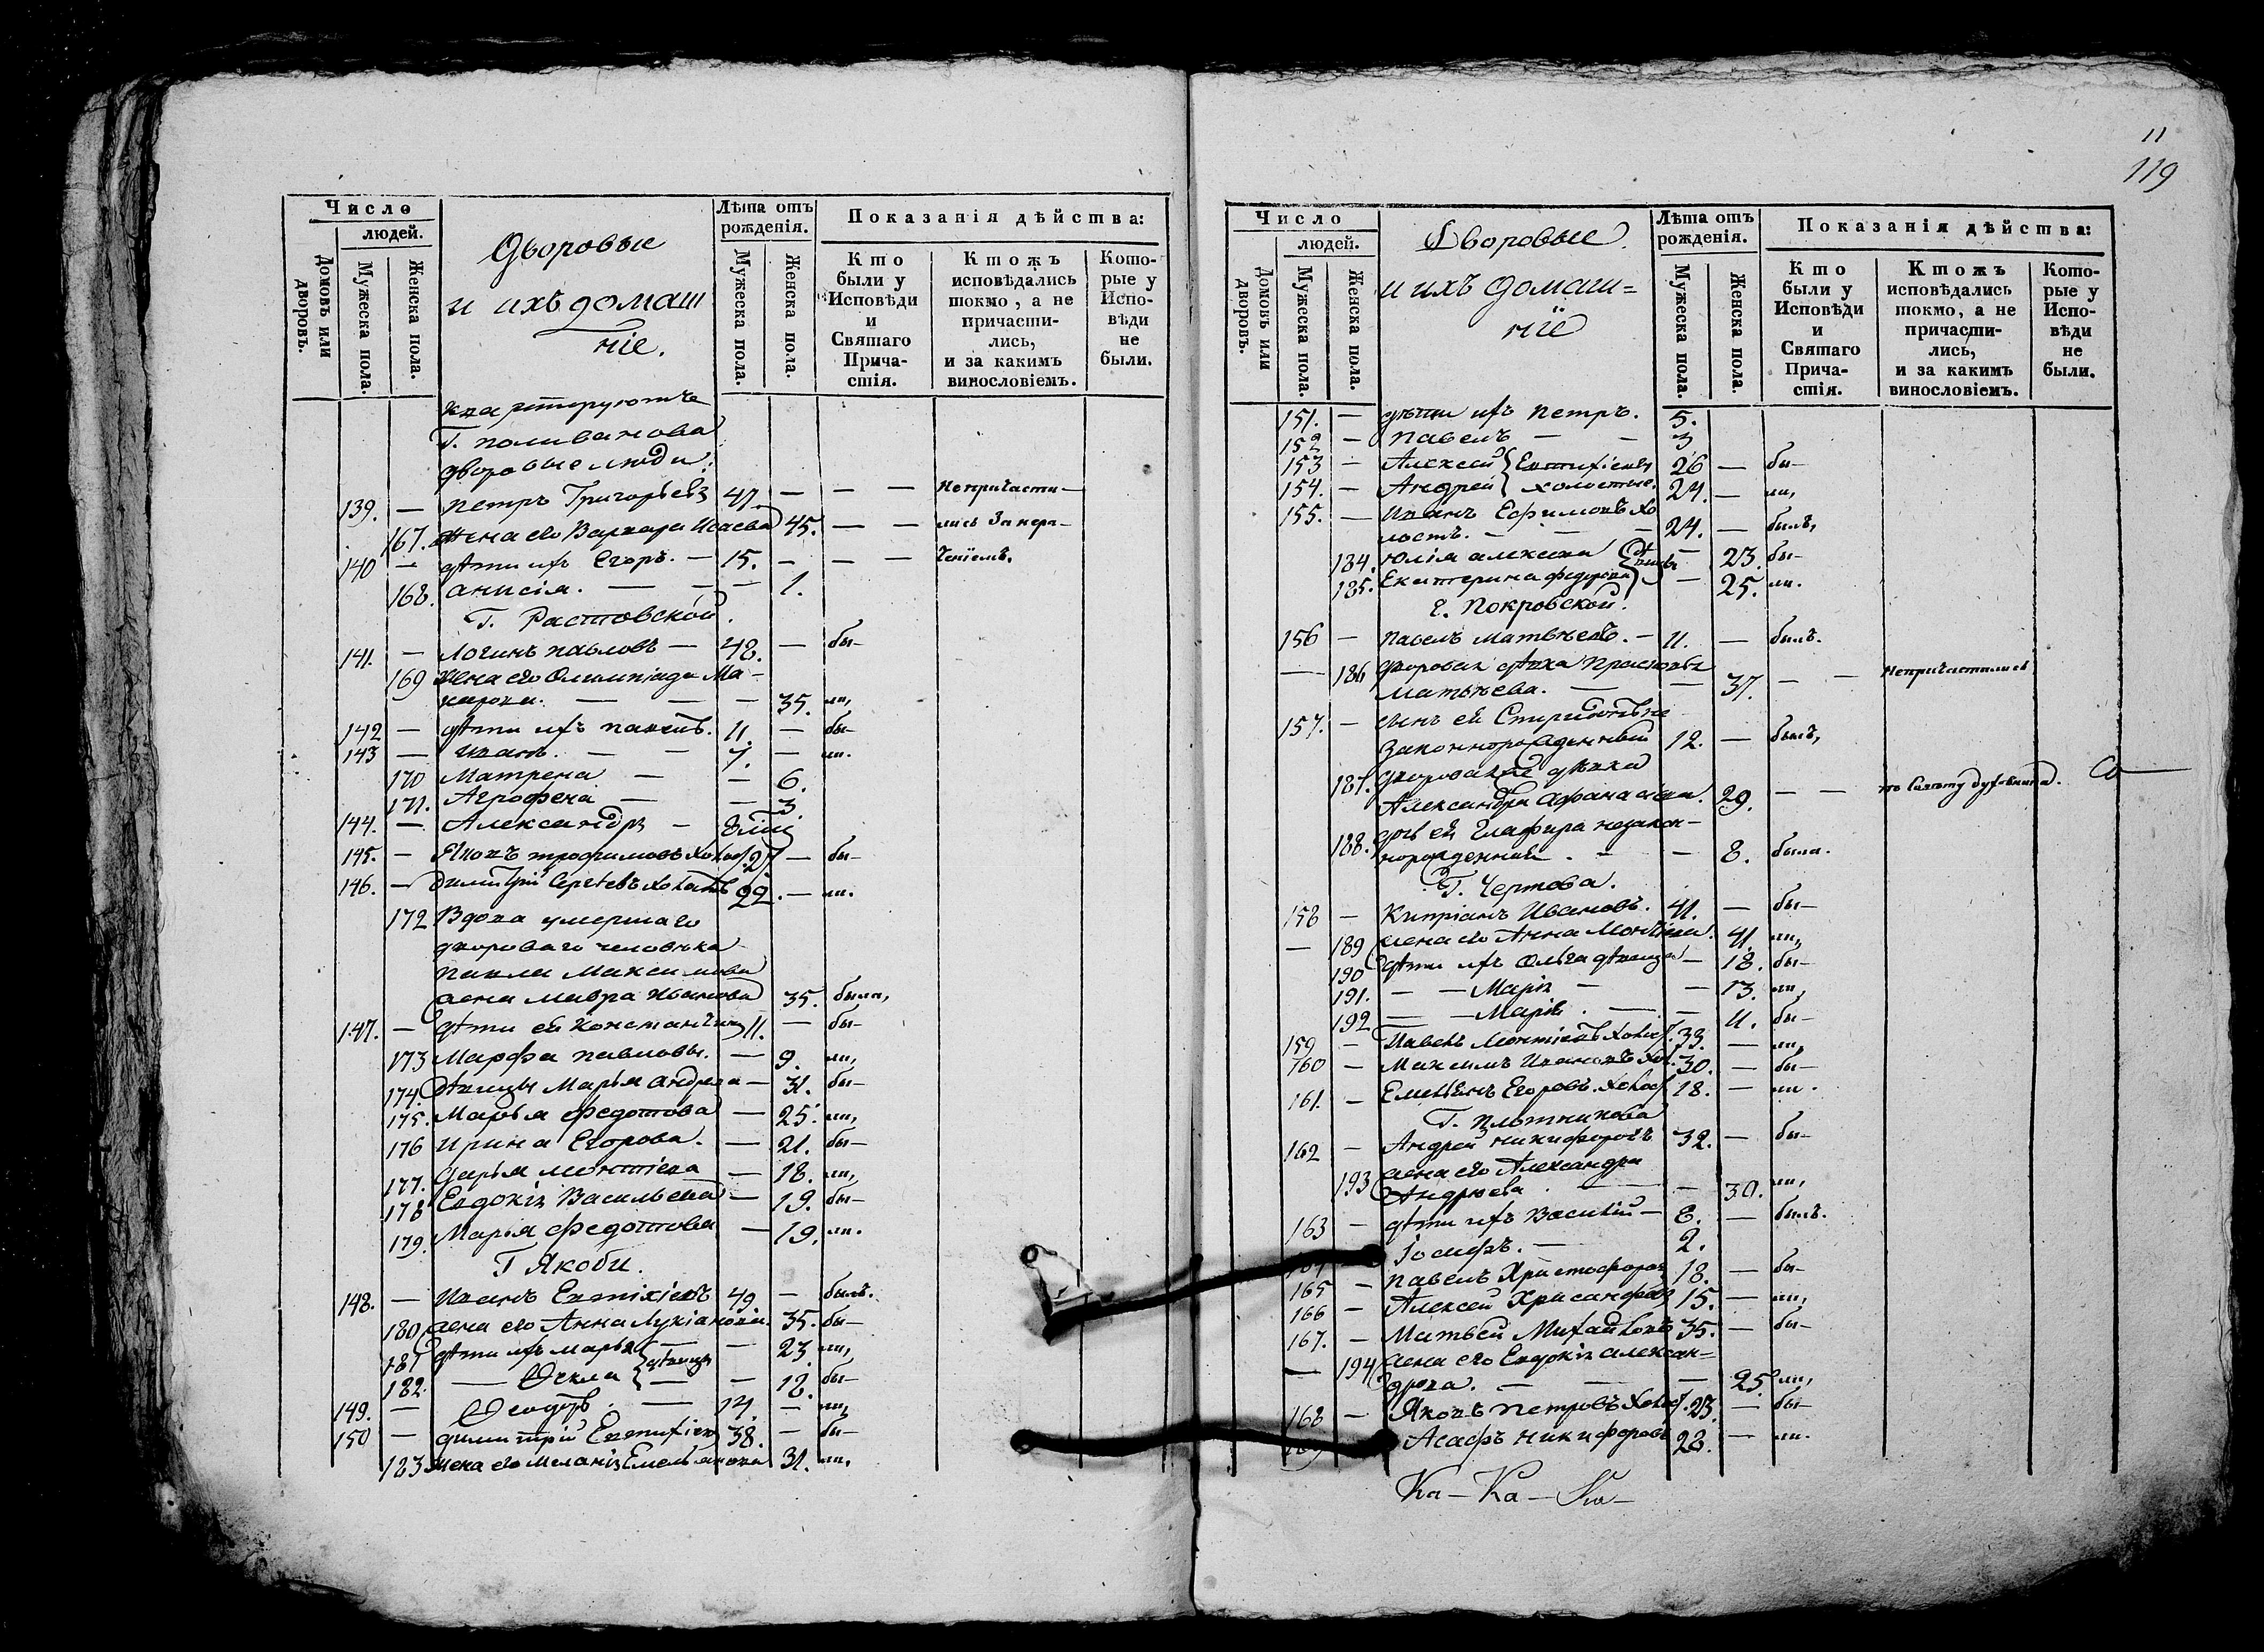 Число
людей.
Домовъ или дворовъ.
Мужеска пола.
Женска пола.
Дворовые
и ихъ домаш
ніе.
Лѣта отъ
рожденія.
Мужеска пола.
Женска пола.
Показанія дѣйства:
Кто
были у
Исповѣди
и
Святаго
Прича-
стія.
Ктожъ
исповѣдались
токмо, а не
причасти-
лись,
и за какимъ
винословіемъ.
Кото-
рые у
Испо-
вѣди
не
были.
Г. Поливанова
дворовые люди:
139. — Петръ Григорьевъ 47 — — — Непричасти—
167. жена его Варвара Исаева 45. — — лись За нера-
140 — дѣти ихъ Егоръ. — 15. — — — ченіемъ.
168. Анисія. — — — 1.
Г. Растовской.
141. — Логинъ Павловъ — 48. — бы—
169 жена его Олимпіада Ма-
карова. — — — 35. ли,
142 — дѣти ихъ Павелъ. 11. — бы—
143 — Иванъ. — — 7. — ли.
170 Матрена — — 6.
171. Агрофена — — 3.
144. — Александръ —
145. — Яковъ Трофимовъ Холос. 27 — бы—
146. — Димитрій Сергѣевъ Холост 22. — ли.
172 Вдова умершаго
двороваго человѣка
Павла Максимова
жена Мавра Иванова 35. была,
147. — дѣти ей Константинъ 11. — бы—
173 Марфа Павловы. — 9. ли,
174. дѣвицы Марья Андреева — 31. бы—
175. Марья Федотова — 25. ли,
176 Ирина Егорова. — 21. бы—
177. Дарья Монтіева — 18. ли,
178 Евдокія Васильева — 19. бы—
179. Марья Федотова — 19. ли.
Г Якоби.
148. — Иванъ Евтихіевъ 49 — былъ.
180 жена его Анна Лукіанова. 35. бы—
181 дѣти ихъ Марья — 23. ли,
182. — Ѳекла } дѣвицы — 18. бы—
149. — Ѳеодоръ. — 14. — ли,
150 — Димитрій Евтихіевъ 38. — бы—
183 жена его Меланія Емельянова 31. ли.
11
119
Число
людей.
Домовъ или дворовъ.
Мужеска пола.
Женска пола.
Дворовые
и ихъ домаш=
ніе
Лѣта отъ
рожденія.
Мужеска пола.
Женска пола.
Показанія дѣйства:
Кто
были у
Исповѣди
и
Святаго
Прича-
стія.
Ктожъ
исповѣдались
токмо, а не
причасти-
лись,
и за какимъ
винословіемъ.
Кото-
рые у
Испо-
вѣди
не
были.
151. — дѣти ихъ Петръ. 5.
152 — Павелъ — — 3
153 — Алексей } Евтихіевы 26 — бы—
154. — Андрей } холостые. 24. — ли,
155. — Иванъ Ефимовъ Хо
лостъ. — — 24. — былъ,
184. Юлія Алексеева — 23. бы—
185. Екатерина Федорова — 25. ли.
г. Покровской.
156 — Павелъ Матвѣевъ. — 11. — былъ.
— 186 дворовая дѣвка Прасковья
Матвѣева. — — 37. — — Непричастились
157. — сынъ ей Спиридонъ не
законнорожденный 12. — былъ,
187. дворовая дѣвка
Александра Афанасьева. 29. — — по Совету духовника.
188. дочь ей Глафира незакон-
норожденная. — — 8. была.
Г. Чертова.
158 — Кипріанъ Ивановъ. 41. — бы—
— 189 жена его Анна Монтіева. 41. ли,
190 дѣти ихъ Ольга дѣвица — 18. бы—
191. — — Марія — — 13. ли,
192 — — Марія. — — 11. бы—
159 — Павелъ Монтіевъ Холос. 33. — ли,
160 — Максимъ Ивановъ Хол. 30. — бы—
161. — Емельянъ Егоровъ Холос 18. — ли.
Г. Плотникова
162 — Андрей Никифоровъ 32. — бы—
193 жена его Александра
Андреева. — — 30. ли,
163 — дѣти ихъ Василій — 8. — былъ.
Іосифъ. — 2.
165 — Павелъ Христофоровъ 18. — бы—
166 — Алексей Хрисанфовъ 15. — ли,
167. — Матвей Михайловъ 35. — бы—
— 194 жена его Евдокія Алексан=
дрова. — — — 25. ли,
168 — Яковъ Петровъ Холос. 23. — бы—
Асафъ Никифоровъ 28. — ли.
Ка — Ка —